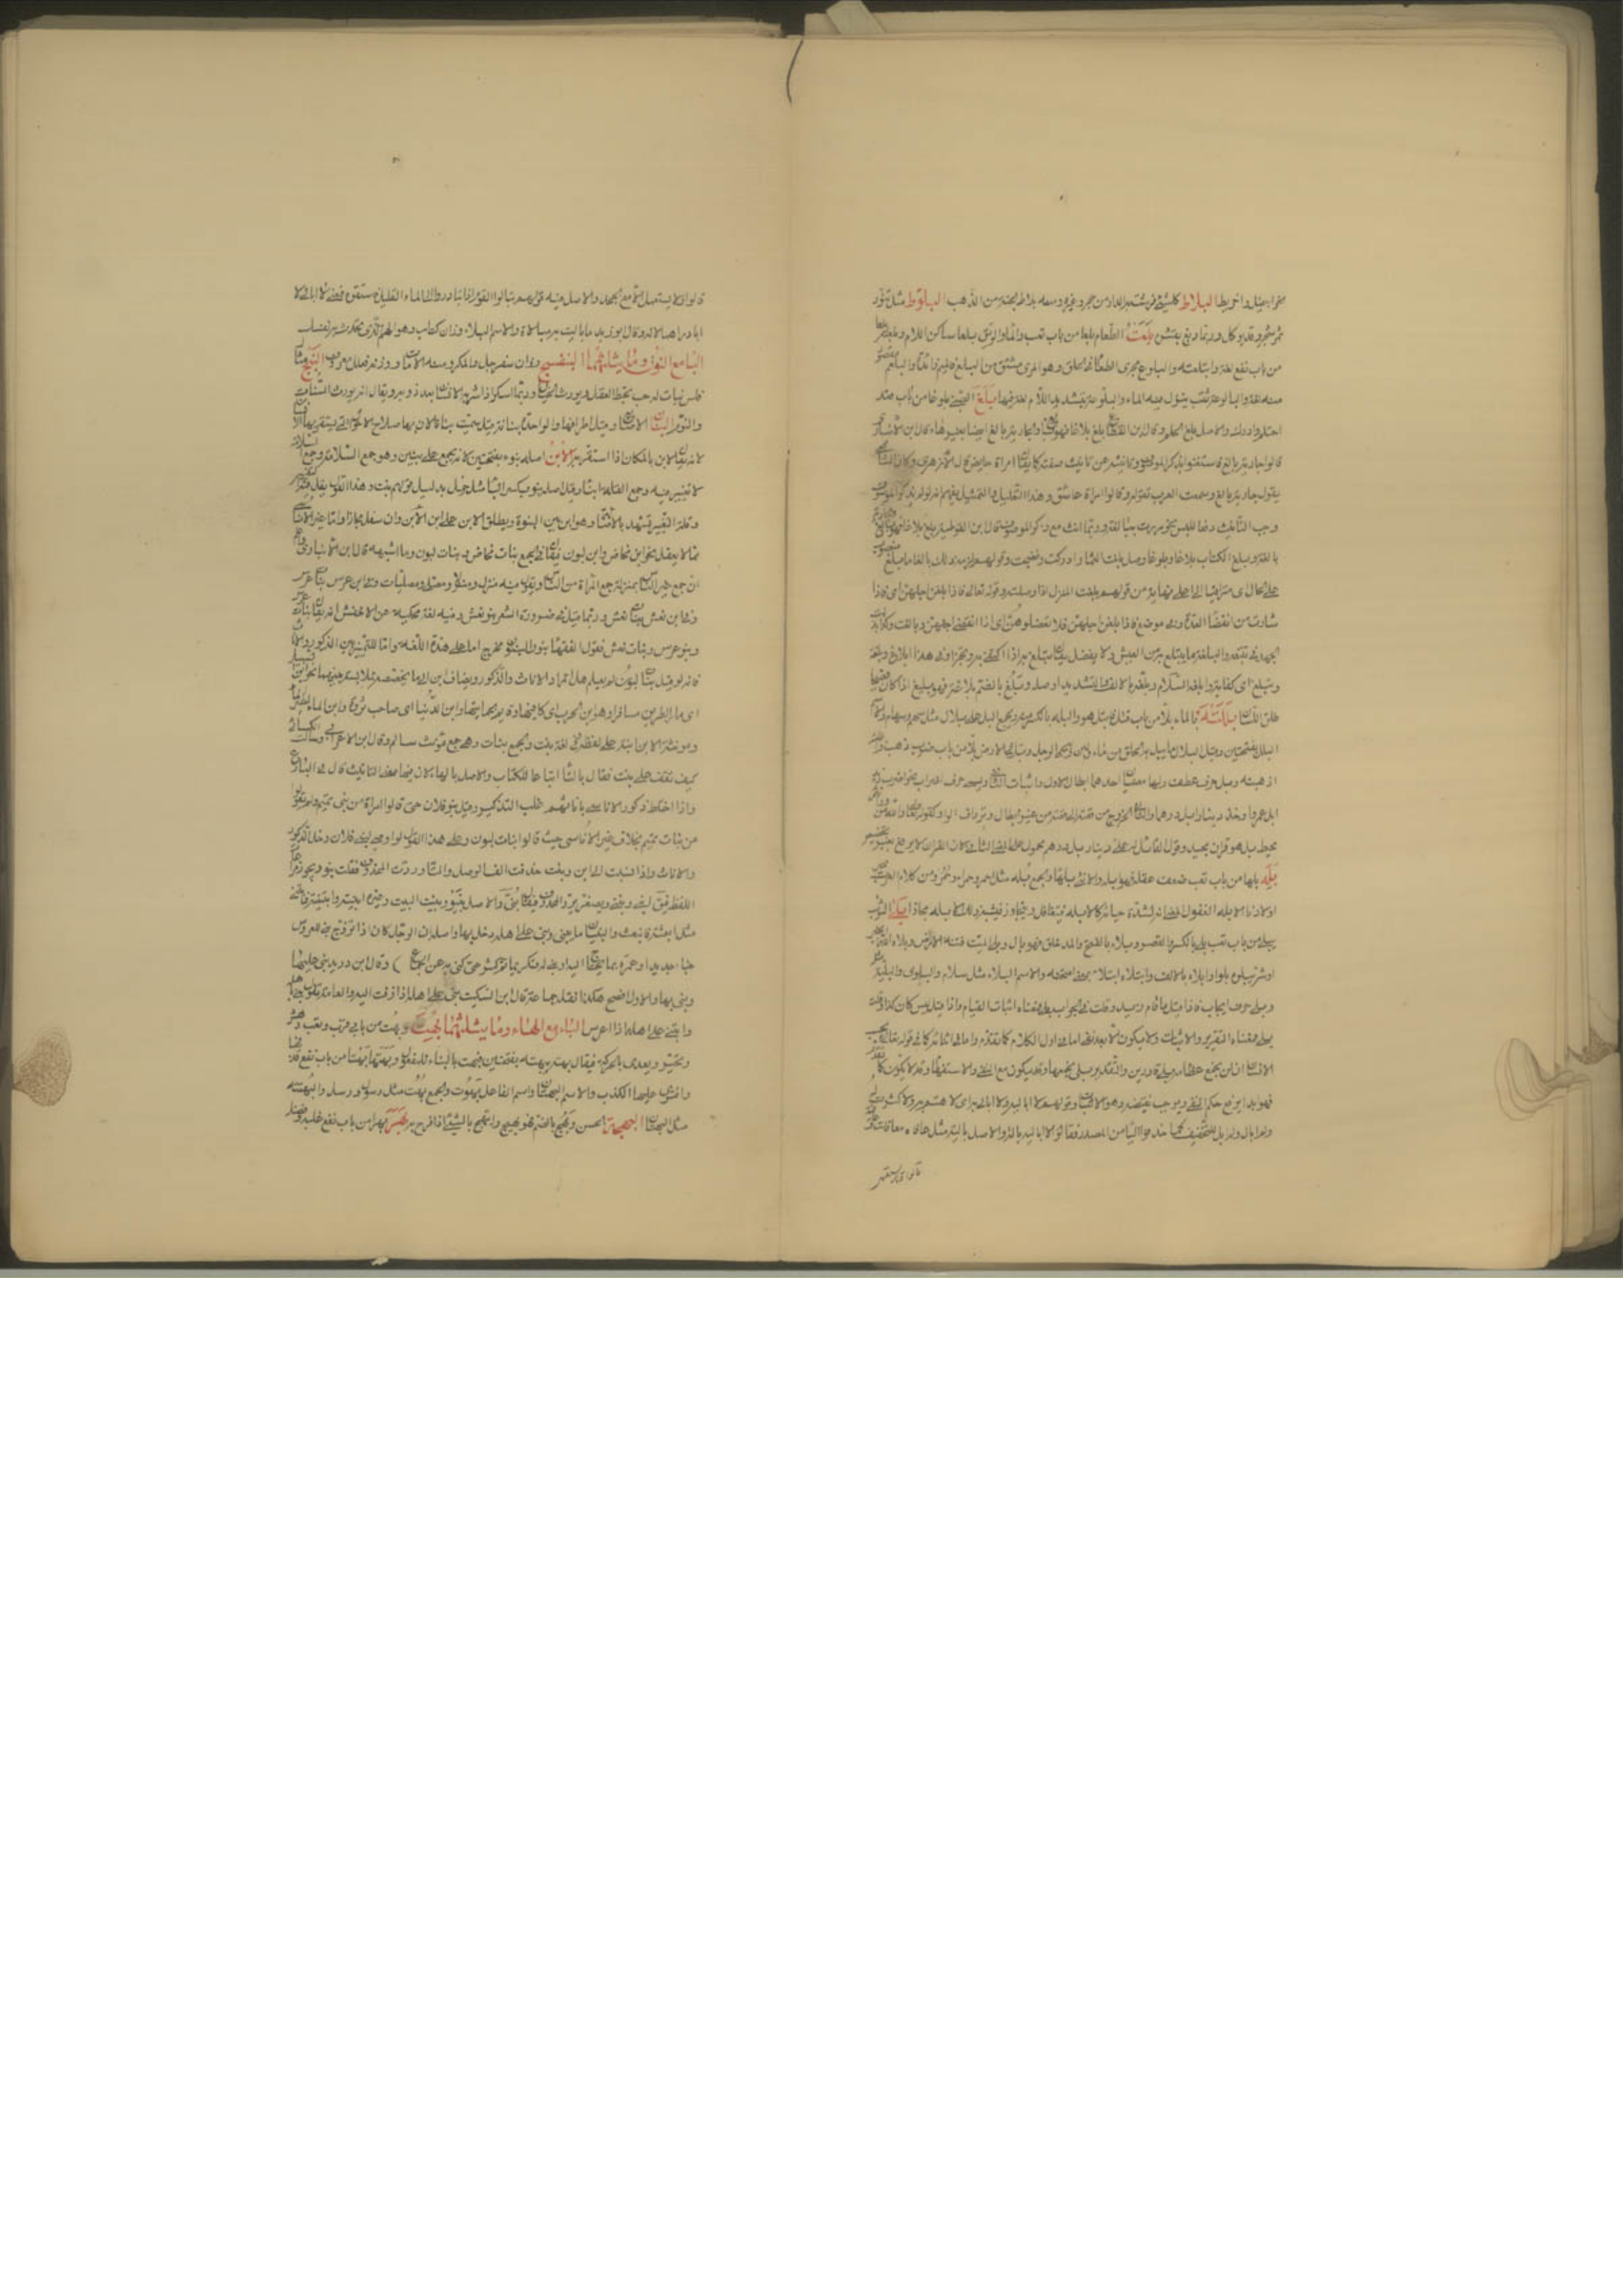 البلاط كل شيء فرشت به الدار من حجر وغيره ومنه بلاط الجنة من الذهب البلوط مثل تنور
ثمر شجر وقد يؤكل وربما دبغ بقشره بلعت الطعام بلعا من باب تعب والماء والريق بلعا ساكن اللام
من باب نفع لغة وابتلعته والبلعوم مجرى الطعام في الحلق وهو المرئ مشتق من البلع فالميم زائدة والبلعم
منه لغة والبالوعة ثقب ينزل فيه الماء والبلوعة بتشديد اللام لغة فيها بلغ الصبي بلوغا من باب قعد
احتلم وادرك والاصل بلغ الحلم وقال ابن القطاع بلغ بلاغا فهو بالغ والجارية بالغ ايضا بغير هاء قال ابن الانباري
قالوا جارية بالغ فاستغنوا بذكر الموصوف وبتأنيثه عن تأنيث صفته كما يقال امراة حايض قال الازهري وكان الشافعي
يقول جارية بالغ وسمعت العرب تقوله وقالوا امراة عاشق وهذا التعليل والتمثيل يفهم انه لو لم يذكر الموصوف
وجب التأنيث دفعا للبس نحو مررت ببالغة وربما انث مع ذكر الموصوف قال ابن القوطية بلغ بلاغا فهو بالغ
بالغة وبلغ الكتاب بلاغا وبلوغا وصل وبلغت الثمار ادركت ونضجت وقولهم لزمه ذلك بالغا ما بلغ
على الحال اي مترقيا الى اعلى نهاياته من قولهم بلغت المنزل اذا وصلته وقوله تعالى فاذا بلغن اجلهن اي فاذا
شارفن انقضاء العدة وفي موضع فاذا بلغن اجلهن فلا تعضلوهن اي اذا انقضى اجلهن وبالغت في كذا بذلت
الجهد في تتبعه والبلغة ما يتبلغ به من العيش ولا يفضل يقال تبلغ به اذا اكتفى به وتجزأ وفي هذا بلاغ وبلغة
وتبلغ اي كفاية وابلغه السلام وبلغه بالالف والتشديد اوصله وبلغ بالضم بلاغة فهو بليغ اذا كان فصيحا
طلق اللسان بللته بالماء بلا من باب قتل فابتل هو والبلة بالكسر منه ويجمع البل على بلال مثل سهم وسهام والاسم
البلل بفتحتين وقيل البلال ما يبل به الحلق من ماء ولبن وبل في الارض بلا من باب ضرب ذهب
وبل حرف عطف ولها معنيان احدهما ابطال الاول واثبات الثاني وتسمى حرف اضراب نحو اضرب زيدا
بل عمرا وخذ دينارا بل درهما والثاني الخروج من قصة الى قصة من غير ابطال وترادف الواو كقوله تعالى والله من ورائهم
محيط بل هو قران مجيد وقول القائل له علي دينار بل درهم محمول على المعنى الثاني لان الاقرار لا يرفع بغير
بله بلها من باب تعب ضعف عقله فهو ابله والانثى بلهاء والجمع بله مثل احمر وحمراء وحمر ومن كلام العرب
خير اولادنا الابله الغفول بمعنى انه لشدة حيائه كالابله فيتغافل ويتجاوز فشبه ذلك بالبله مجازا بلي الثوب
يبلى من باب تعب بلى بالكسر والقصر وبلاء بالفتح والمد خلق فهو بال وبلي الميت افنته الارض وبلاه الله بخير
او شر يبلوه بلوا وابلاه بالالف وابتلاه ابتلاء بمعنى امتحنه والاسم البلاء مثل سلام والبلوى والبلية مثله
وبلى حرف ايجاب فاذا قيل ما قام زيد وقلت في الجواب بلى فمعناه اثبات القيام واذا قيل اليس كان كذا وقلت
بلى فمعناه التقرير والاثبات ولا يكون الا بعد نفي اما في اول الكلام كما تقدم واما في اثنائه كما في قوله تعالى ايحسب
الانسان ان لن نجمع عظامه بلى قادرين والتقدير بلى نجمعها وقد يكون مع النفي والاستفهام وقد لا يكون كما تقدم
فهو ابدا يرفع حكم النفي ويوجب نقيضه وهو الاثبات وقولهم لا اباليه ولا ابالي به اي لا اهتم به ولا اكترث له
ولم ابال ولم ابل للتخفيف كما حذفوا الياء من المصدر فقالوا لا اباليه بالة والاصل بالية مثل عافاه معافاة وعافية
قالوا ولا يستعمل
قالوا ولا يستعمل الا مع الجحد والاصل فيه قولهم تبالى القوم اذا تبادروا الى الماء القليل فاستقوا فمعنى لا ابالي لا
ابادر اهمالا له وقال ابو زيد ما باليت به مبالاة والاسم البلاء وزان كتاب وهو الهم الذي تحدث به نفسك
الباء مع النون وما يثلثهما البنفسج وزان سفرجل والمكرر منه اللامات ووزنه فعلل معرب البنج مثال
فلس نبات له حب يخلط بالعقل ويورث الخبال وربما اسكر اذا شربه الانسان بعد ذوبه ويقال انه يورث السبات
والنوم البنان الاصابع وقيل اطرافها والواحدة بنانة قيل سميت بنانا لان بها صلاح الاحوال التي يستقر بها الانسان
لانه يقال ابن بالمكان اذا استقر به الابن اصله بنو بفتحتين لانه يجمع على بنين وهو جمع السلامة وجمع السلامة
لا تغيير فيه وجمع القلة ابناء وقيل اصله بنو بكسر الباء مثل حمل بدليل قولهم بنت وهذا القول يقل فيه التغيير
وقلة التغيير تشهد بالاصالة وهو ابن بين البنوة ويطلق الابن على ابن الابن وان سفل مجازا واما غير الاناسي
مما لا يعقل نحو ابن مخاض وابن لبون فيقال في الجمع بنات مخاض وبنات لبون وما اشبهه قال ابن الانباري واعلم
ان جمع غير الناس بمنزلة جمع المراة من الناس تقول فيه منزل ومنزلات ومصلى ومصليات وفي ابن عرس بنات عرس
وفي ابن نعش بنات نعش وربما قيل في ضرورة الشعر بنو نعش وفيه لغة محكية عن الاخفش انه يقال بنات عرس
وبنو عرس وبنات نعش وبنو نعش فقول الفقهاء بنو اللبون مخرج اما على هذه اللغة واما للتمييز بين الذكور والاناث
فانه لو قيل بنات لبون لم يعلم هل المراد الاناث والذكور ويضاف ابن الى ما يخصصه لملابسة بينهما نحو ابن السبيل
اي مار الطريق مسافرا وهو ابن الحرب اي كافيها وقايم بحمايتها وابن الدنيا اي صاحب ثروة وابن الماء لطير الماء
ومؤنثة الابن ابنة على لفظه وفي لغة بنت والجمع بنات وهو جمع مؤنث سالم وقال ابن الاعرابي وسالت الكسائي
كيف تقف على بنت فقال بالتاء اتباعا للكتاب والاصل بالهاء لان فيها معنى التانيث قال في البارع
واذا اختلط ذكور الاناسي باناثهم غلب التذكير وقيل بنو فلان حتى قالوا امراة من بني تميم ولم يقولوا
من بنات تميم بخلاف غير الاناسي حيث قالوا بنات لبون وعلى هذا القول لو اوصى لبني فلان دخل الذكور
والاناث واذا نسبت الى ابن وبنت حذفت الف الوصل والتاء ورددت المحذوف فقلت بنوي ويجوز مراعاة
اللفظ فيقال ابني وبنتي ويصغر برد المحذوف فيقال بني والاصل بنيو وبنيت البيت وغيره ابنيه وابتنيته فانبنى
مثل بعثته فانبعث والبنيان ما يبنى وبنى على اهله دخل بها واصله ان الرجل كان اذا تزوج بنى للعرس
خباء جديدا وعمره بما يحتاج اليه او بني له تكريما ثم كثر حتى كني به عن الجماع وقال ابن دريد بنى عليها
وبنى بها والاول افصح هكذا نقله جماعة قال ابن السكيت بنى على اهله اذا زفت اليه والعامة تقول بنى باهله
وابتنى على اهله اذا اعرس الباء مع الهاء وما يثلثهما بهت وبهت من بابي قرب وتعب دهش
وتحير ويعدى بالحركة فيقال بهته يبهته بفتحتين فبهت بالبناء للمفعول وبهتها بهتا من باب نفع قذفها
وافترى عليها الكذب والاسم البهتان واسم الفاعل بهوت والجمع بهت مثل رسول ورسل والبهتة
مثل البهتان البهجة الحسن وبهج بالضم فهو بهيج وابتهج بالشيء اذا فرح به بهره بهرا من باب نفع غلبه وفضله